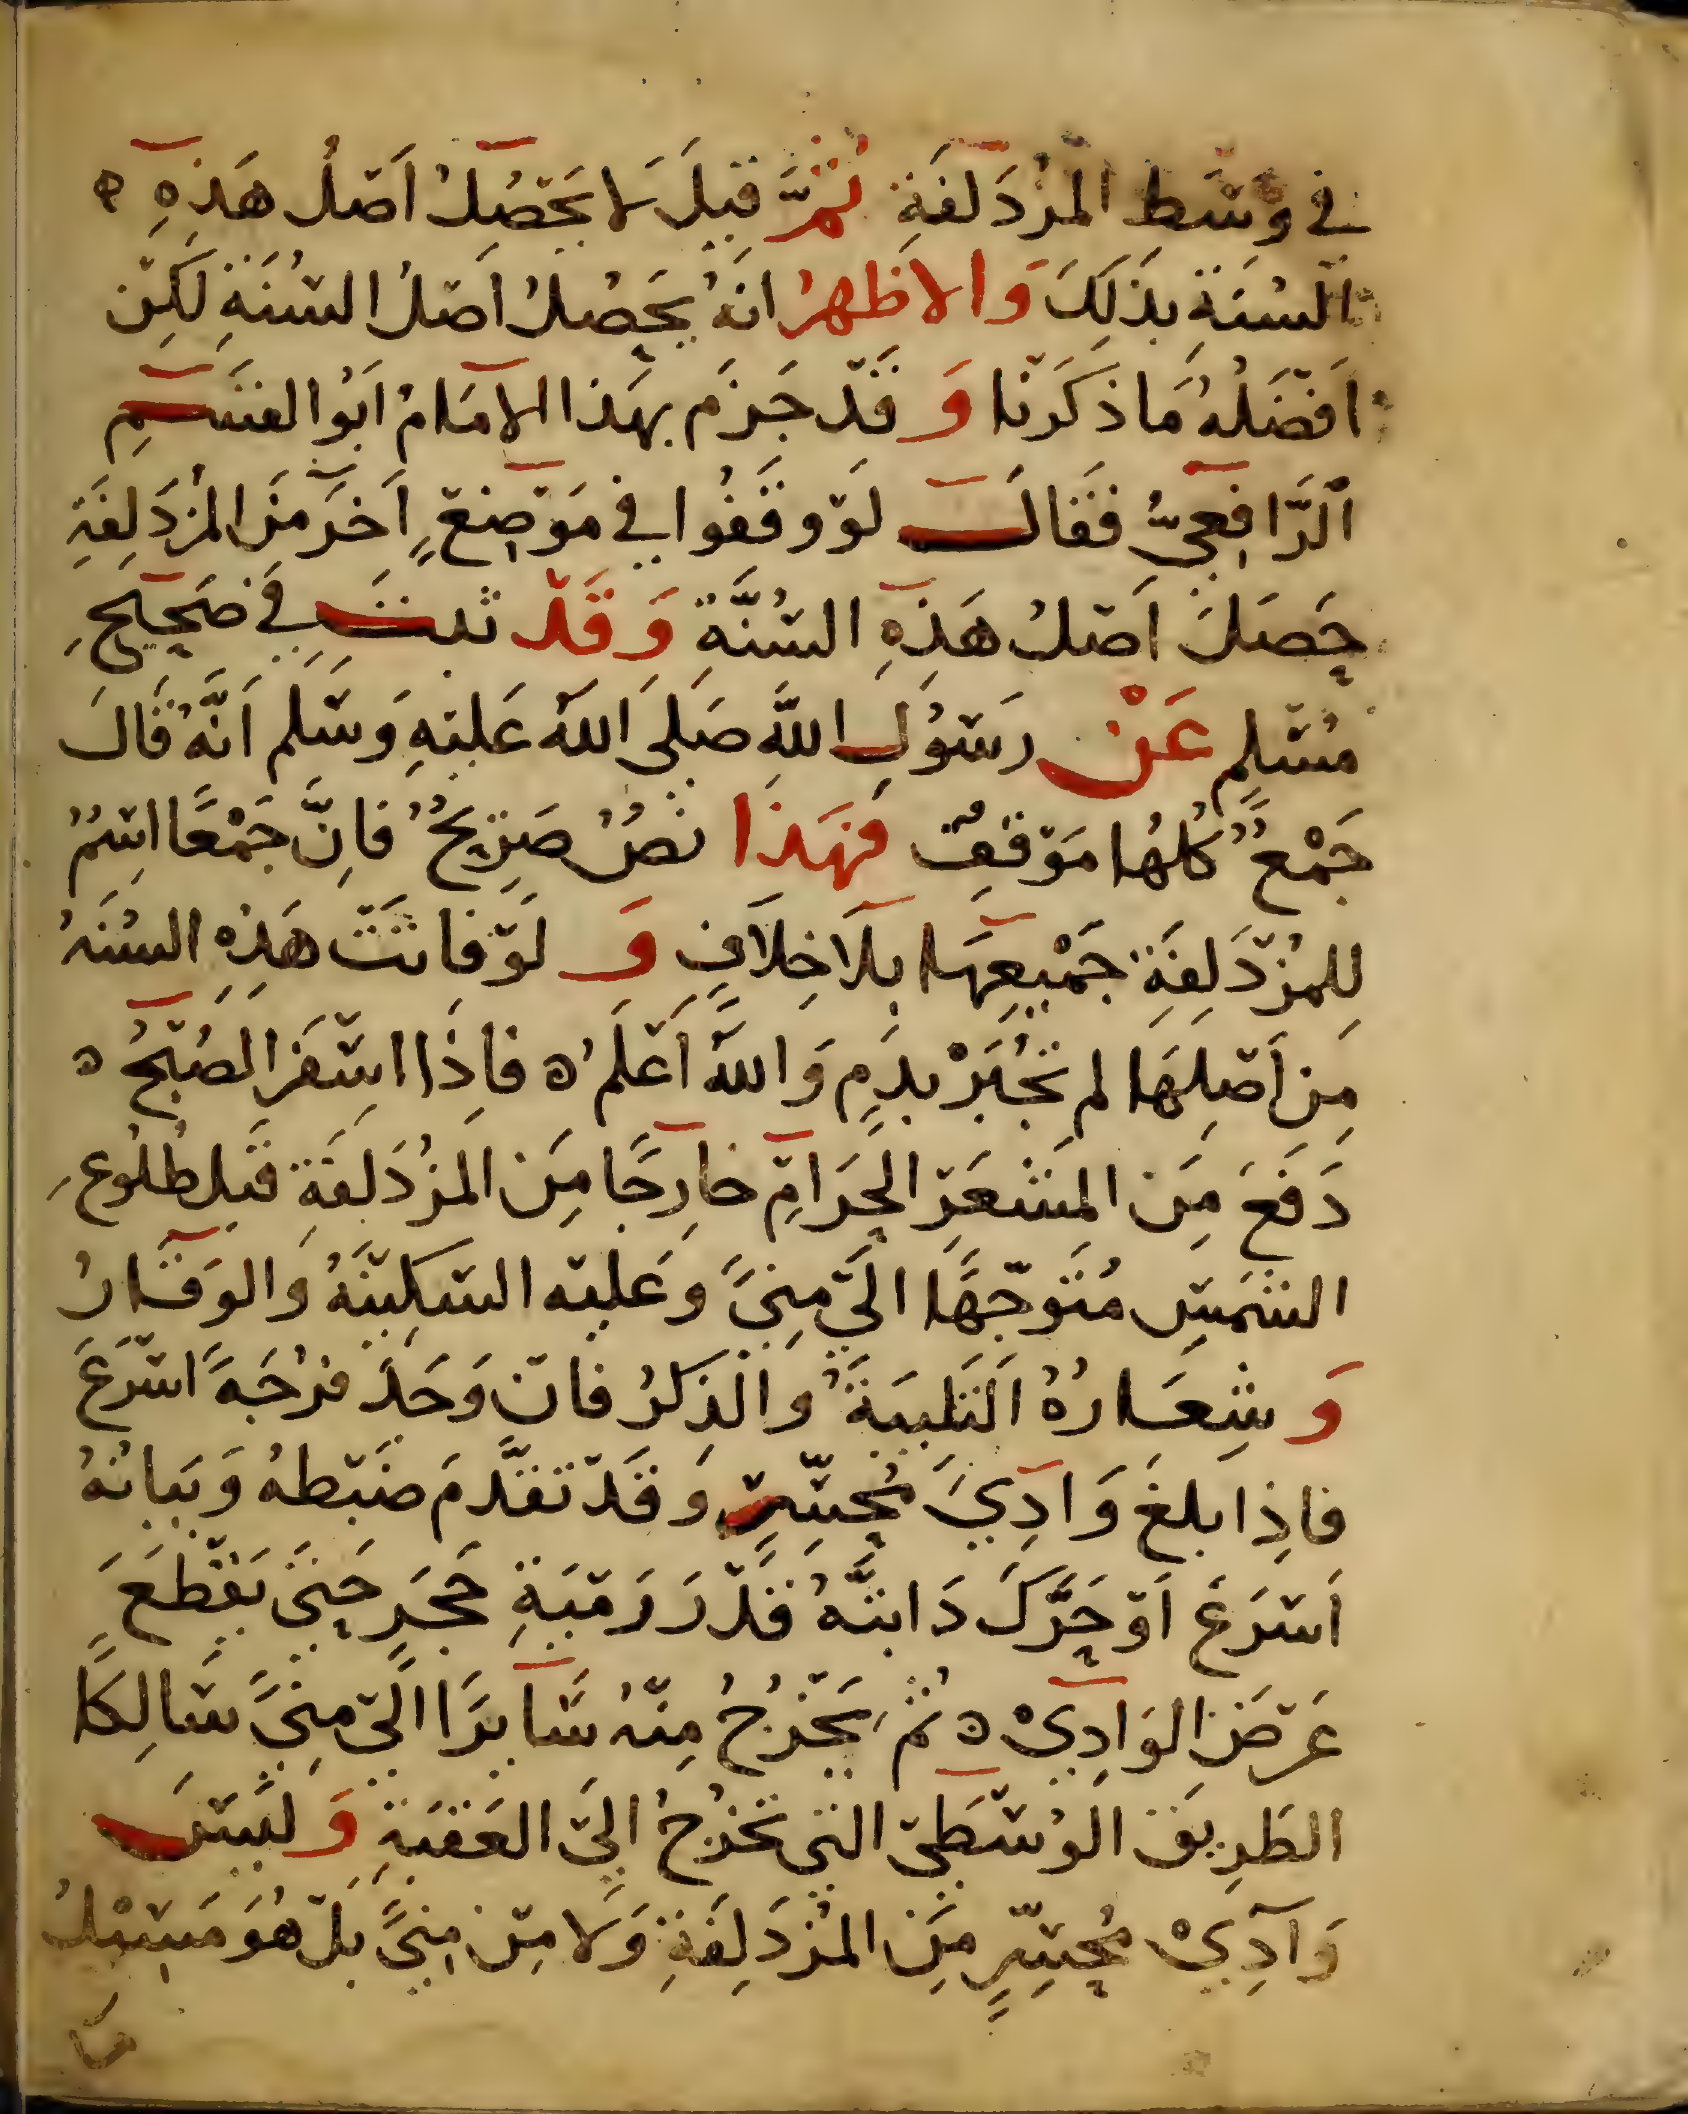 في وَسَطِ المُزْدَلفَةِ ثُمَّ قيلَ لا يَحْصُلُ اَصْلُ هَذِهِ
السُنَةِ بذَلِكَ وَالاظهرُ انَهُ يحَصُلُ اَصْلُ السُنَةِ لَكِنْ
اَفْضَلُهُ مَا ذكَرْنا وَقَدْ جَزَم بهَذا الامَامُ ابَوُا لقَسَمِ
الرَّافِعيُّ فقَالَ لَوْ وقَفُوا في مَوْضِعٍ اَخَرَ مِنَ المزُدَلِفَةِ
حَصَلَ اَصْلُ هَذِهِ السُنَّةِ وَقَدْ ثبتَ فِي صَحِيْحِ
مُسْلِمٍ عَنْ رَسَوُلِ اللَّهِ صَلَى اللَهُ عَليْهِ وَسَلَم اَنَّهُ قَالَ
جَمْعٌ كُلهُا مَوْقِفٌ فهَذَا نصٌ صَرِيْحٌ فاِنَّ جَمْعًا اسْمٌ
لِلمُزْدَلِفَةِ جَمْيعِهَا بلَا خِلَافٍ وَ لَوْ فاتَتْ هَذِهِ السُنَةُ
مِن اَصْلِهَا لم تُجْبَرْ بدَمٍ وَاللَهُ اَعْلَمُ ه فاِذَا اسْفَرَ الصُبْحُ ه
دَفَعَ مِنَ المشَعَرِ الحَرَامِ خارِجًا مِنَ المزُدَلفَةِ قَبل طُلوُعِ
الشمَسِ مُتَوَجّهًا الَى مِنىً وَعَليْه السَكِيْنَةُ وَالوَقَارُ
وَ شِعَارُهُ التَلبيَةُ وَالذِكرُ فاِنْ وَجَدَ فرُجَةً اسْرَعَ
فاِذَا بَلغَ وَادِيَ مُحَسِّرٍ وَقَدْ تقَدَّمَ ضَبْطهُ وَبَيانهُ
اَسْرَعَ اَوْ حَرَّكَ دَابتَّهُ قَدْرَ رَمْيَةِ حَجَرٍ حَتىَ يَقْطَعَ
عَرْضَ الوَادِيْ ه ثُمَ يَخْرُجُ مِنْهُ سَايرًا الَىْ مِنىً سَالِكًا
الطَرِيقَ الوُسْطَىْ التي تخَرُجُ اِلىَ العَقَبَةِ وَ ليَسَ
وَادِيْ مُحَسِّرٍ مِنَ المُزْدَلِفَةِ وَلا مِنْ مِنىً بَلْ هُوَ مَسِيْلُ